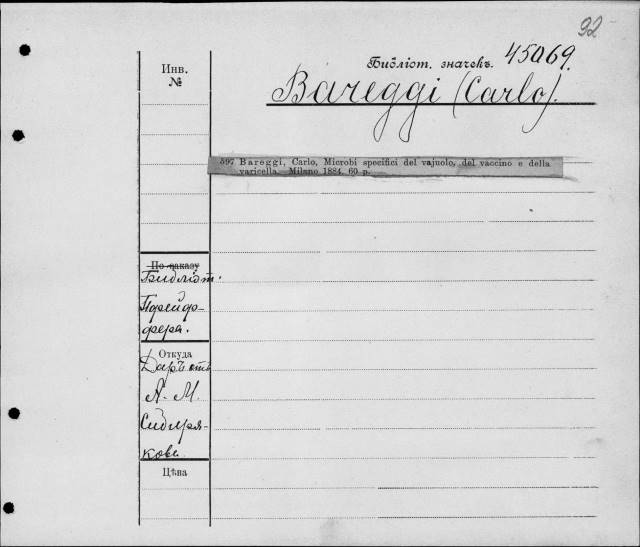 92
Инв.
№
Библіот. значекъ. 45069.
Bareggi (Carlo).
597 Bareggi, Carlo, Microbi specifici del vajuolo, del vaccino e della
varicella. Milano 1884. 60 p.
По заказу
Библіот.
Пфейф-
фера.
Откуда
Даръ отъ
А. М.
Сибиря-
кова.
Цѣна